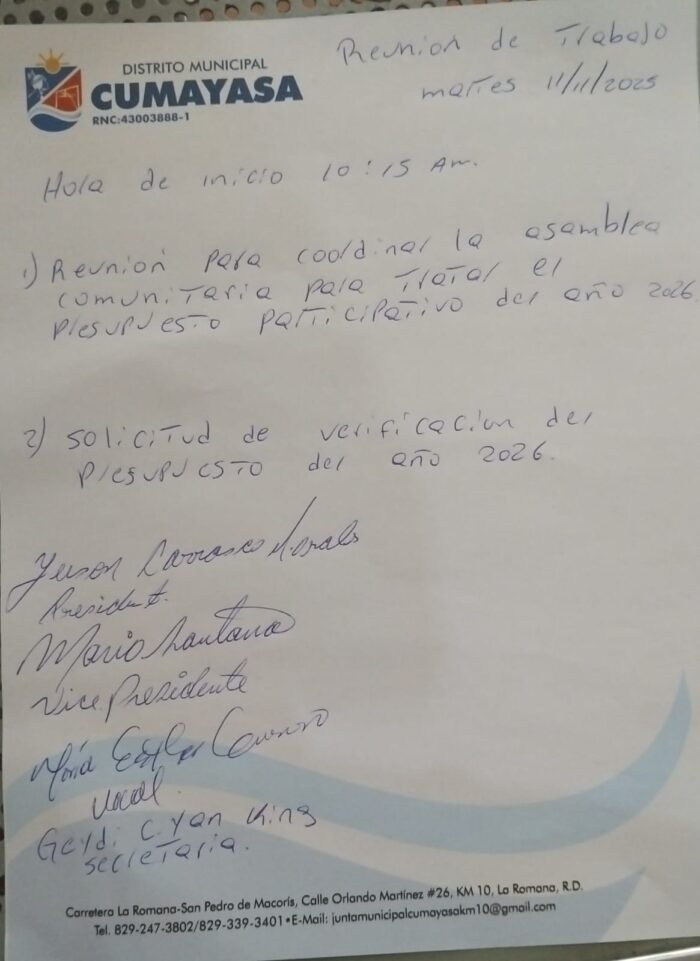 DISTRITO MUNICIPAL
CUMAYASA
RNC:43003888-1
Reunion de Trabajo
martes 11/11/2025
Hora de inicio 10:15 Am.
1) Reunion para coordinar la asamblea
comunitaria para Tratar el
Presupuesto Participativo del año 2026
2) Solicitud de verificacion del
Presupuesto del año 2026.
Yeison Carrasco Morales
President.
Mario Santana
Vice Presidente
María
Vocal.
Geydi C. Yan King
secretaria.
Carretera La Romana-San Pedro de Macorís, Calle Orlando Martínez #26, KM 10, La Romana, R.D.
Tel. 829-247-3802/829-339-3401•E-Mail: juntamunicipalcumayasakm10@gmail.com